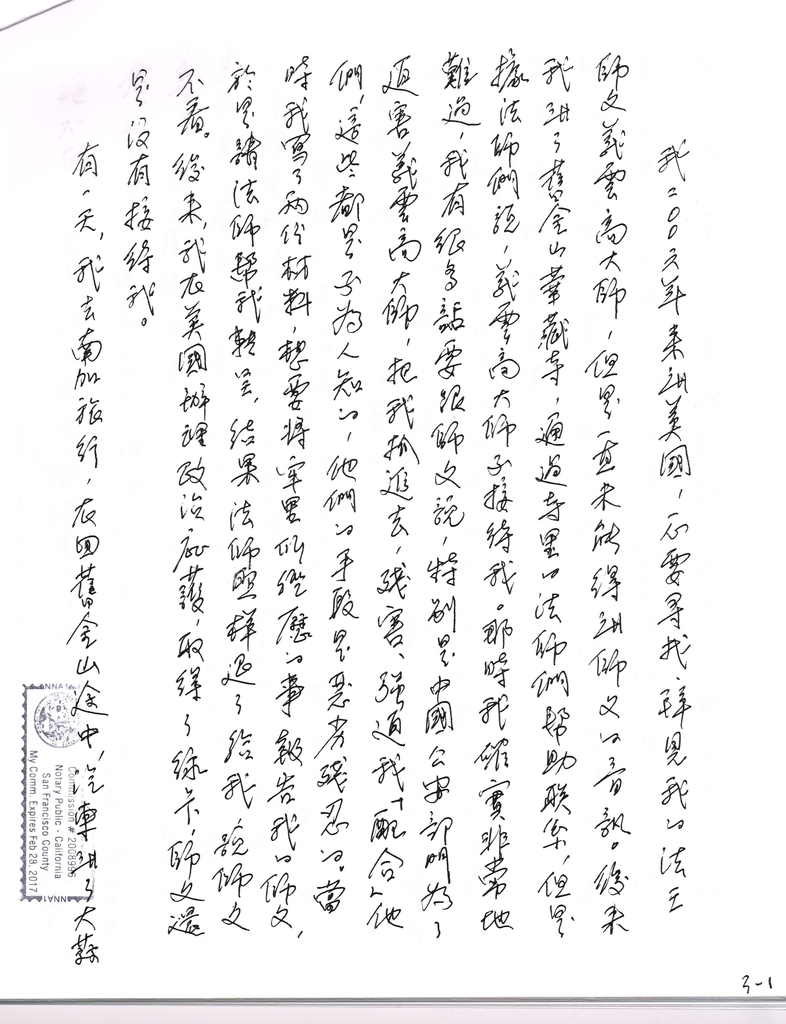 我二00六年來到美國，一心要尋找、拜見我的法王
師父義雲高大師，但是一直未能得到師父的音訊。後來
我到了舊金山華藏寺，通過寺里的法師們幫助聯系，但是
據法師們說，義雲高大師不接待我。那時我確實非常地
難過，我有很多話要跟師父說，特別是中國公安部門為了
迫害義雲高大師，把我抓進去，殘害、強迫我"配合"他
們，這些都是不為人知的，他們的手段是惡劣殘忍的。當
時我寫了兩份材料，想要將牢里所經歷的事報告我的師父，
於是請法師幫我轉呈，結果法師照樣退了給我，說師父
不看。後來，我在美國辦理政治庇護，取得了綠卡，師父還
是沒有接待我。
有一天，我去南加旅行，在回舊金山途中，汽車到了大蒜
Commission # 2008996
Notary Public - California
San Francisco County
My Comm. Expires Feb 28, 2017
3-1